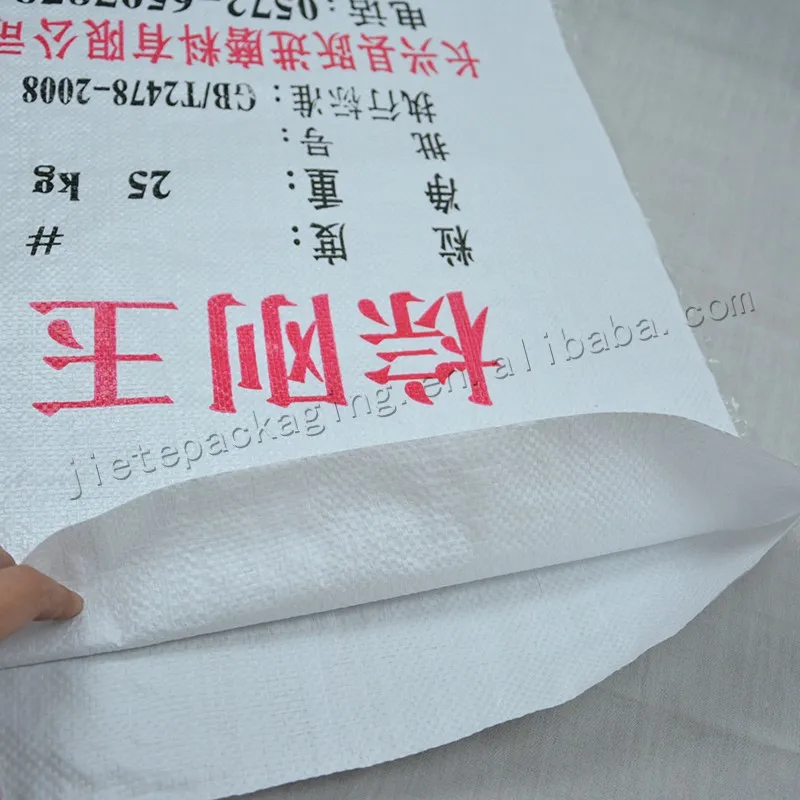 棕刚玉
粒 度: #
净 重: 25 kg
批 号:
执行标准: GB/T2478-2008
长兴县跃进磨料有限公司
电话:
jietepackaging.en.alibaba.com